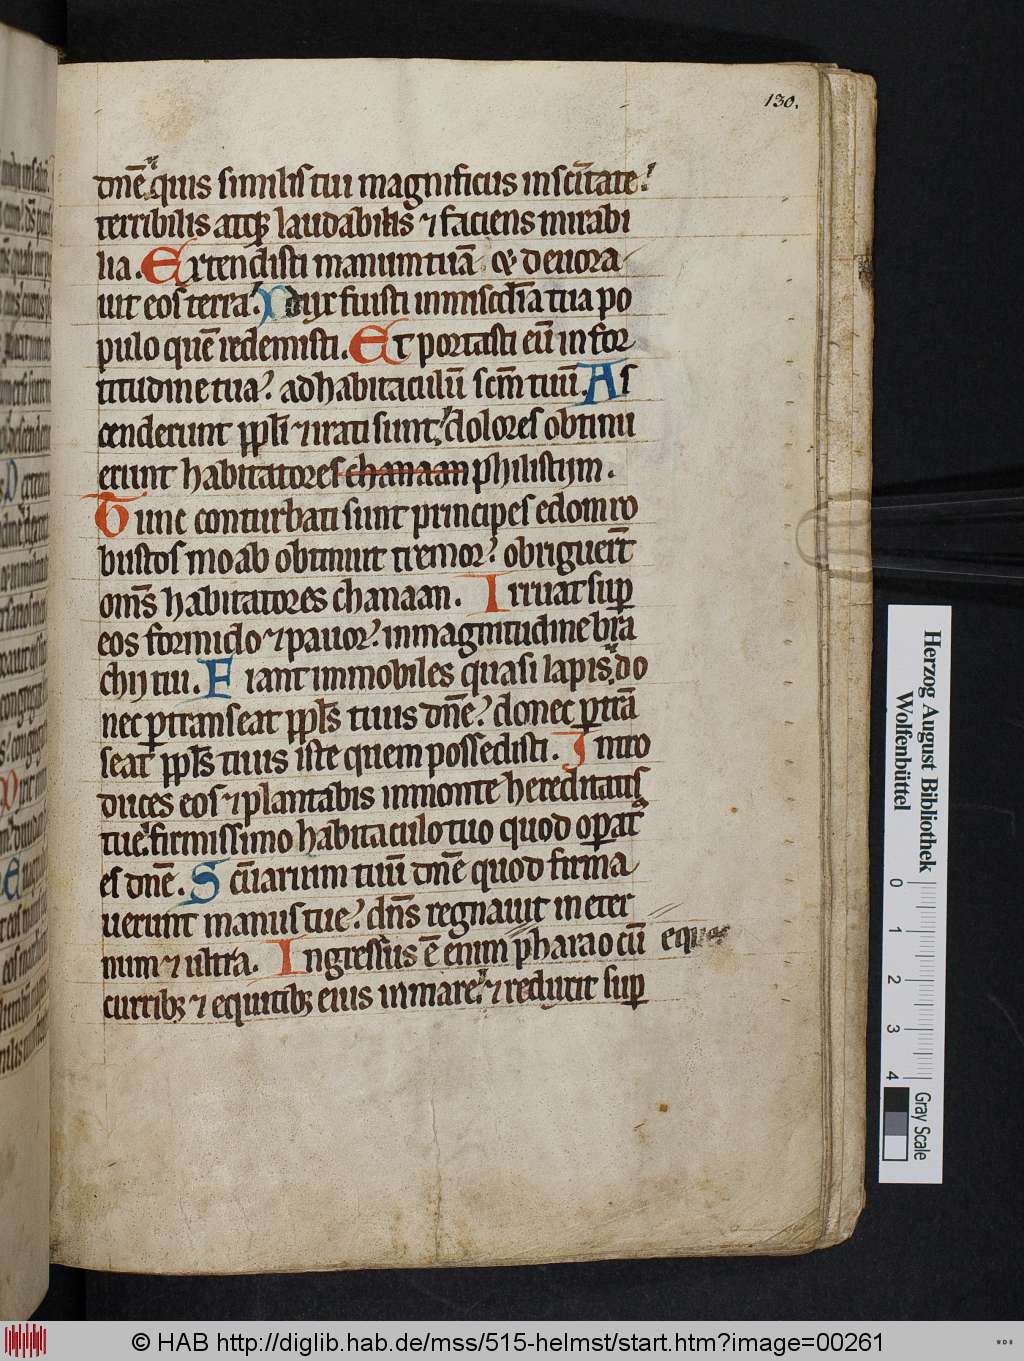 130.
dn̄e quis similis tui magnificus in sc̄itate
terribilis atq; laudabilis ⁊ faciens mirabi
lia. Extendisti manum tuā & deuora
uit eos terra. Dux fuisti in mīscdīa tua po
pulo quē redemisti. Et portasti eū in for
titudine tua? ad habitaculū scm̄ tuū. As
cenderunt ppl̄i ⁊ irati sunt, dolores obtinu
erunt habitatores chanaan philistym.
Tunc conturbati sunt principes edom ro
bustos moab obtinuit tremor? obriguer̄t
om̄s habitatores chanaan. Irruat suꝑ
eos formido ⁊ pauor? in magnitudine bra
chij tui. Fiant immobiles quasi lapis, do
nec ꝑtranseat ppl̄s tuus dn̄e? donec ꝑtrā
seat ppl̄s tuus iste quem possedisti. Intro
duces eos ⁊ plantabis in monte hereditatis
tue. firmissimo habitaculo tuo quod oꝑat
es dn̄e. Sc̄uarium tuū dn̄e quod firma
uerunt manus tue? dn̄s regnauit in eter
num ⁊ ultra. Ingressus ē enim pharao cū eques
curribȝ ⁊ equitibȝ eius in mare. ⁊ reduxit suꝑ
Herzog August Bibliothek
Wolfenbüttel
0 1 2 3 4
Gray Scale
© HAB http://diglib.hab.de/mss/515-helmst/start.htm?image=00261